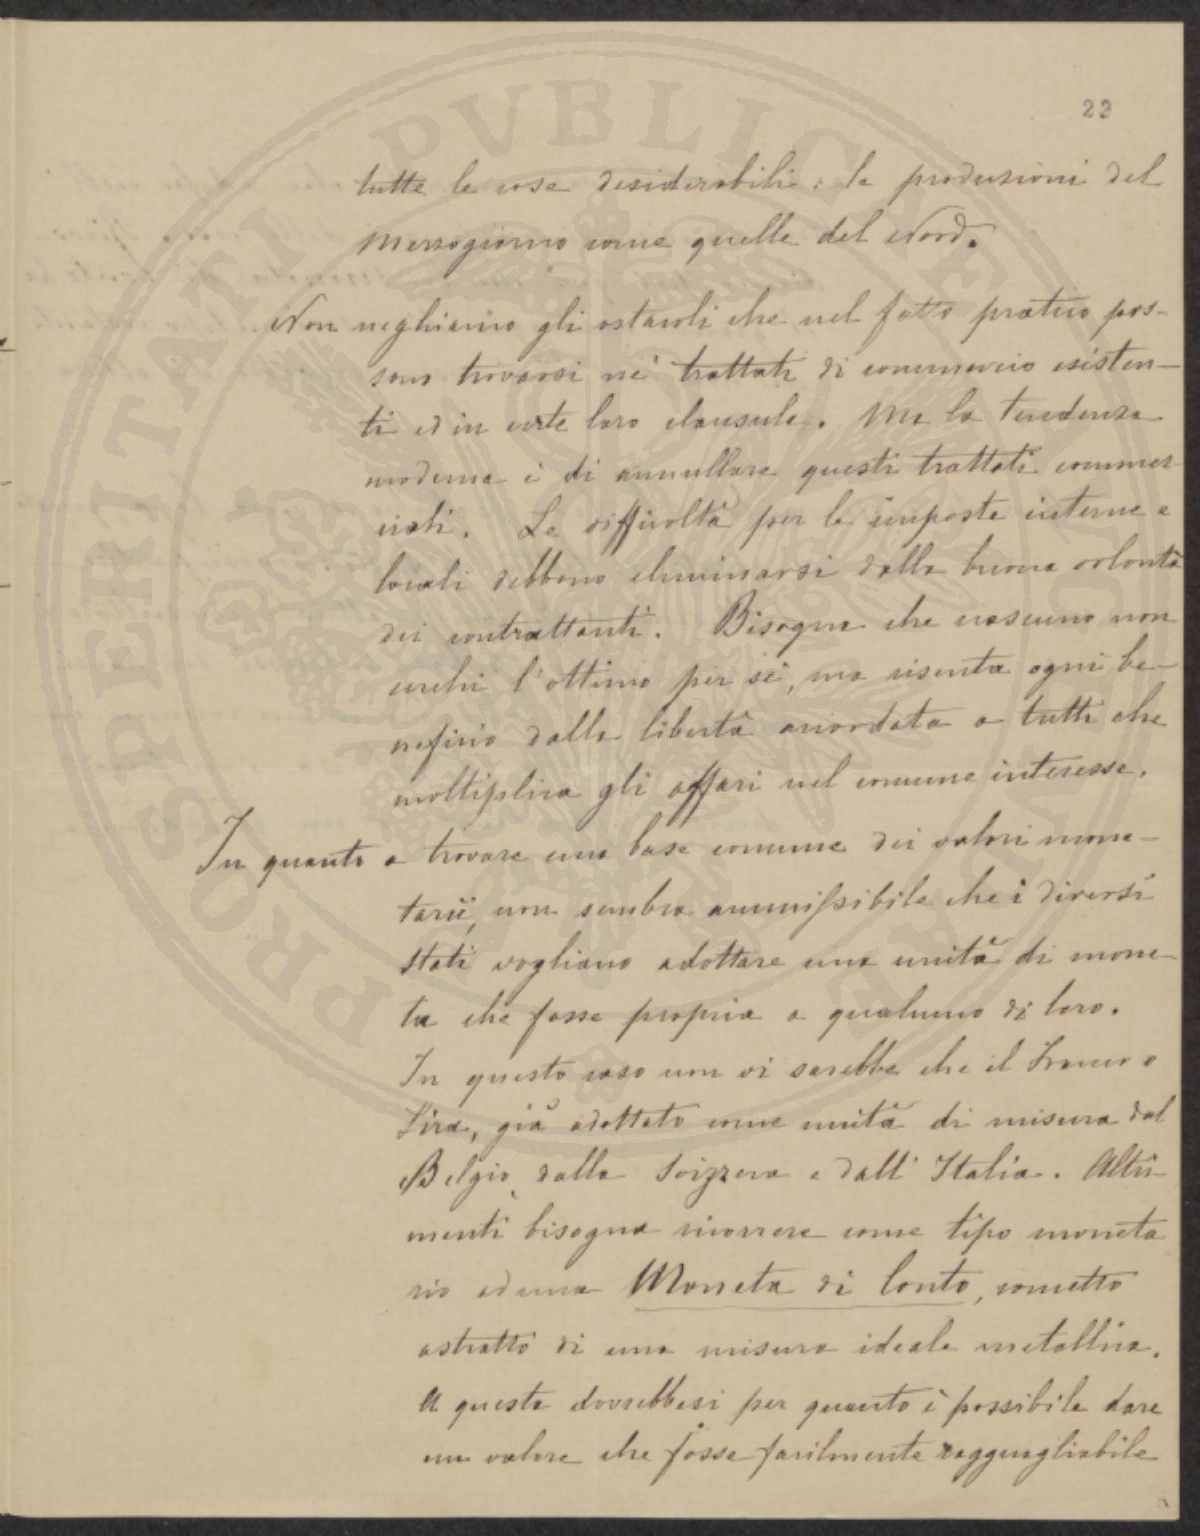 23
tutte le cose desiderabili: le produzioni del
Mezzogiorno come quelle del Nord.
Non neghiamo gli ostacoli che nel fatto pratico pos-
sano trovarsi nei trattati di commercio esisten-
ti ed in certe loro clausule. Ma la tendenza
moderna è di annullare questi trattati commer-
ciali. Le difficoltà per le imposte interne e
locali debbono eliminarsi dalla buona volontà
dei contrattanti. Bisogna che ciascuno non
cerchi l'ottimo per sè, ma risenta ogni be-
neficio dalla libertà accordata a tutti che
moltiplica gli affari nel comune interesse.
In quanto a trovare una base comune dei valori mone-
tarii, non sembra ammissibile che i diversi
stati vogliano adottare una unità di mone-
ta che fosse propria a qualcuno di loro.
In questo caso non vi sarebbe che il Franco o
Lira, già adottato come unità di misura dal
Belgio, dalla Svizzera e dall'Italia. Altri-
menti bisogna ricorrere come tipo moneta
rio ad una Moneta di Conto, concetto
astratto di una misura ideale metallica.
A questa dovrebbesi per quanto è possibile dare
un valore che fosse facilmente ragguagliabile
PROSPERITATI PVBLICAE